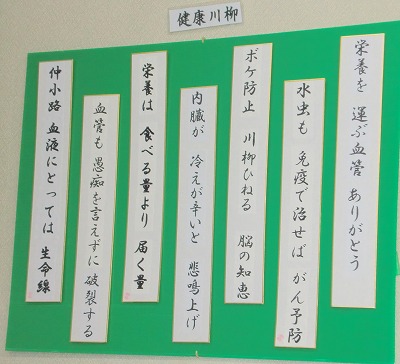 健康川柳
栄養を 運ぶ血管 ありがとう
水虫も 免疫で治せば がん予防
ボケ防止 川柳ひねる 脳の知恵
内臓が 冷えが辛いと 悲鳴上げ
栄養は 食べる量より 届く量
血管も 愚痴を言えずに 破裂する
仲小路 血液にとっては 生命線